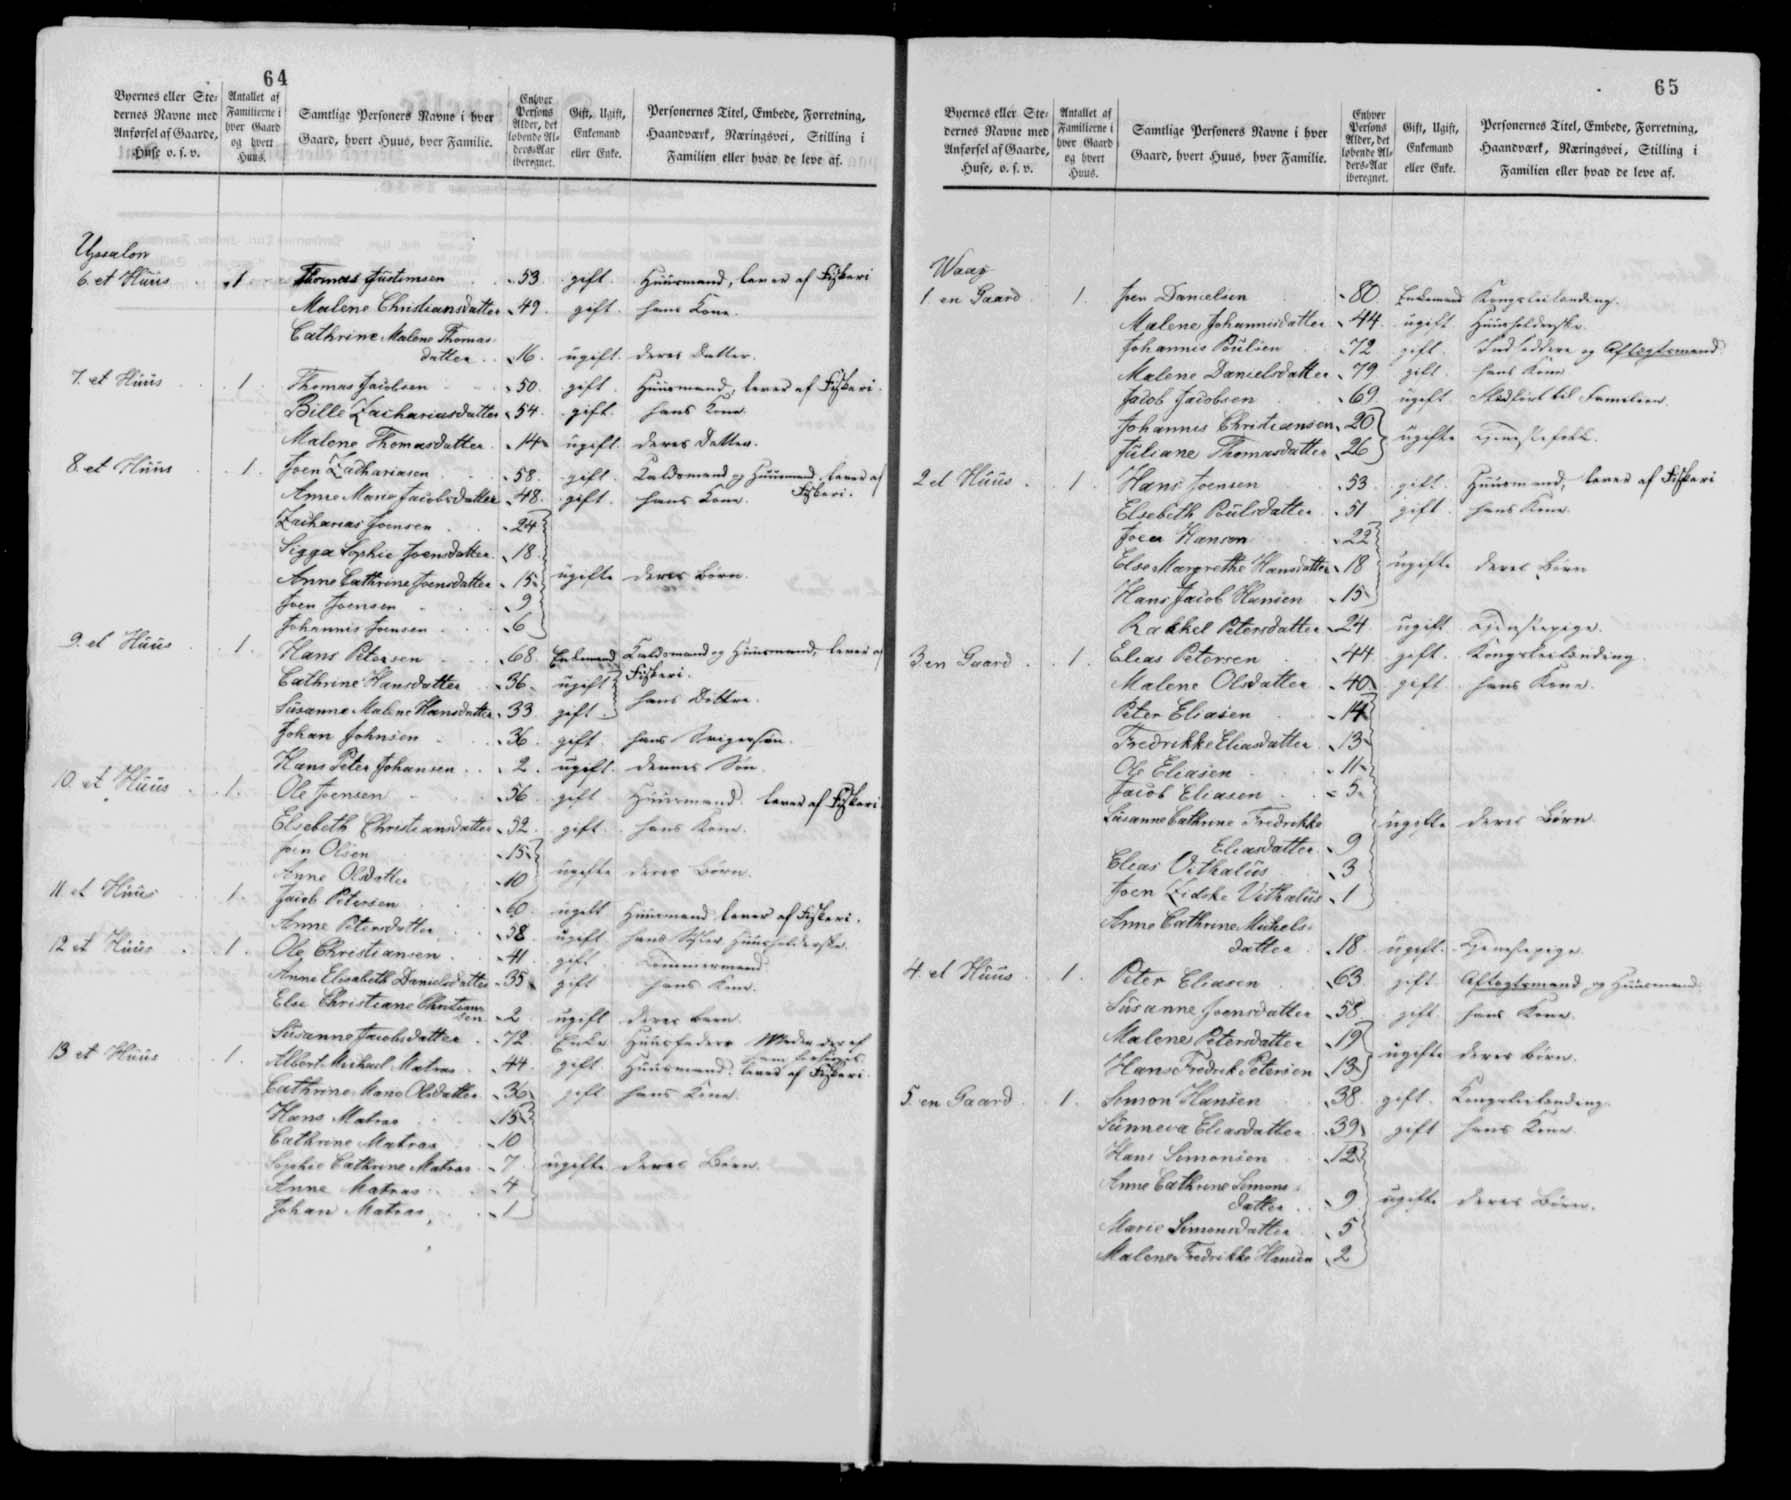 64
Byernes eller Ste-
dernes Navne med
Anførsel af Gaarde,
Huse o. s. v.
Antallet af
Familierne i
hver Gaard
og hvert
Huus.
Samtlige Personers Navne i hver
Gaard, hvert Huus, hver Familie.
Enhver
Persons
Alder, det
løbende Al-
ders-Aar
iberegnet.
Gift, Ugift,
Enkemand
eller Enke.
Personernes Titel, Embede, Forretning,
Haandværk, Næringsvei, Stilling i
Familien eller hvad de leve af.
6. et Huus 1 Thomas Justinusen 53 gift Huusmand, lever af Fiskeri
Malene Christiansdatter 49 gift hans Kone
Cathrine Malene Thomas-
datter 16 ugift deres Datter
7. et Huus 1 Thomas Jacobsen 50 gift Huusmand, lever af Fiskeri
Bille Zachariasdatter 54 gift hans Kone
Malene Thomasdatter 14 ugift deres Datter
8. et Huus 1 Joen Zachariasen 58 gift og Huusmand, lever af
Fiskeri
Anne Marie Jacobsdatter 48 gift hans Kone
Zacharias Joensen 24
Sigga Sophie Joensdatter 18
Anne Cathrine Joensdatter 15 ugifte deres Børn
Joen Joensen 9
Johannis Joensen 6
9. et Huus 1 Hans Petersen 68 Enkemand og Huusmand, lever af
Fiskeri
Cathrine Hansdatter 36 ugift
Susanne Malene Hansdatter 33 gift hans Døttre
Johan Johnsen 36 gift hans Svigersøn
Hans Peter Johansen 2 ugift dennes Søn
10. et Huus 1 Ole Joensen 56 gift Huusmand lever af Fiskeri
Elsebeth Christiansdatter 52 gift hans Kone
Joen Olsen 15
Anne Olsdatter 10 ugifte deres Børn
11. et Huus 1 Jacob Petersen 60 ugift Huusmand lever af Fiskeri
Anne Petersdatter 58 ugift hans Søster Huusholderske
12 et Huus 1 Ole Christiansen 41 gift Tømmermand
Anne Elisabeth Danielsdatter 35 gift hans Kone
Else Christiane Christian-
sen 2 ugift deres Barn
Susanne Jacobsdatter 72 Enke Huusfaders Moder der af
ham forsørges
13 et Huus 1 Albert Michael Matras 44 gift Huusmand lever af Fiskeri
Cathrine Marie Olsdatter 36 gift hans Kone
Hans Matras 15
Cathrine Matras 10
Sophie Cathrine Matras 7 ugifte deres Børn
Anne Matras 4
Johan Matras 1
65
Byernes eller Ste-
dernes Navne med
Anførsel af Gaarde,
Huse, o. s. v.
Antallet af
Familierne i
hver Gaard
og hvert
Huus.
Samtlige Personers Navne i hver
Gaard, hvert Huus, hver Familie.
Enhver
Persons
Alder, det
løbende Al-
ders-Aar
iberegnet.
Gift, Ugift,
Enkemand
eller Enke.
Personernes Titel, Embede, Forretning,
Haandværk, Næringsvei, Stilling i
Familien eller hvad de leve af.
Waag
1 en Gaard 1 Joen Danielsen 80 Enkemand Kongsleilænding
Malene Johannisdatter 44 ugift Huusholderske
Johannis Poulsen 72 gift og Aftægtsmand
Malene Danielsdatter 79 gift hans Kone
Jacob Jacobsen 69 ugift til Familien
Johannis Christiansen 20
Juliane Thomasdatter 26 ugifte Tjenestefolk
2 et Huus 1 Hans Joensen 53 gift Huusmand, lever af Fiskeri
Elsebeth Poulsdatter 51 gift hans Kone
Joen Hansen 22
Else Margrethe Hansdatter 18 ugifte deres Børn
Hans Jacob Hansen 15
Rakkel Petersdatter 24 ugift Tjenestepige
3 en Gaard 1 Elias Petersen 44 gift Kongsleilænding
Malene Olsdatter 40 gift hans Kone
Peter Eliasen 14
Fredrikke Eliasdatter 13
Ole Eliasen 11
Jacob Eliasen 5
Susanne Cathrine Fredrikke
Eliasdatter 9 ugifte deres Børn
Elias Vithalus 3
Joen Zidske Vithalus 1
Anne Cathrine Michels-
datter 18 ugift Tjenestepige
4. et Huus 1 Peter Eliasen 63 gift Aftægtsmand og Huusmand
Susanne Joensdatter 58 gift hans Kone
Malene Petersdatter 19
Hans Fredrik Petersen 13 ugifte deres Børn
5 en Gaard 1 Simon Hansen 38 gift Kongsleilænding
Sunneva Eliasdatter 39 gift hans Kone
Hans Simonsen 12
Anne Cathrine Simons-
datter 9 ugifte deres Børn
Marie Simonsdatter 5
Malene Fredrikke Hansen 2